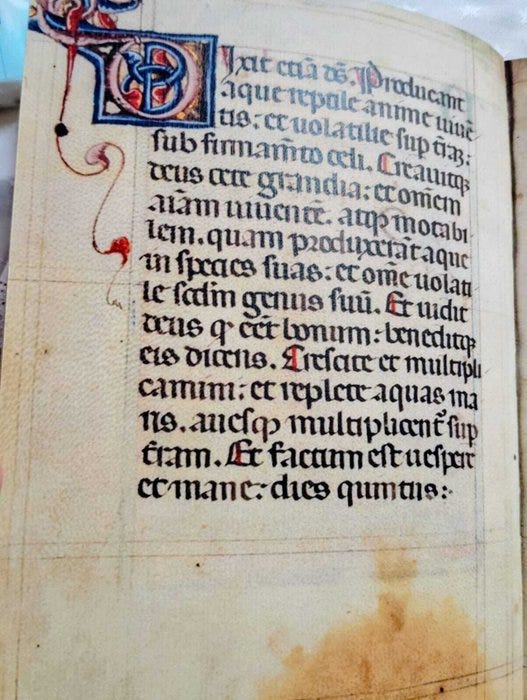 Dixit etiā ds. Producant
aque reptile anime uiuē
tis: et uolatile sup t̄rā:
sub firmam̄to celi. Creauitqȝ
deus cete grandia: et om̄em
aīam uiuentē. atqȝ motabi
lem. quam produxer̄at aque
in species suas: et om̄e uolati
le scd̄m genus suū. Et uidit
deus qꝫ eēt bonum: benedixitqȝ
eis dicens. Crescite et multipli
camini: et replete aquas ma
ris. auesqȝ multiplicent̄ sup
t̄ram. Et factum est uespere
et mane: dies quintus: